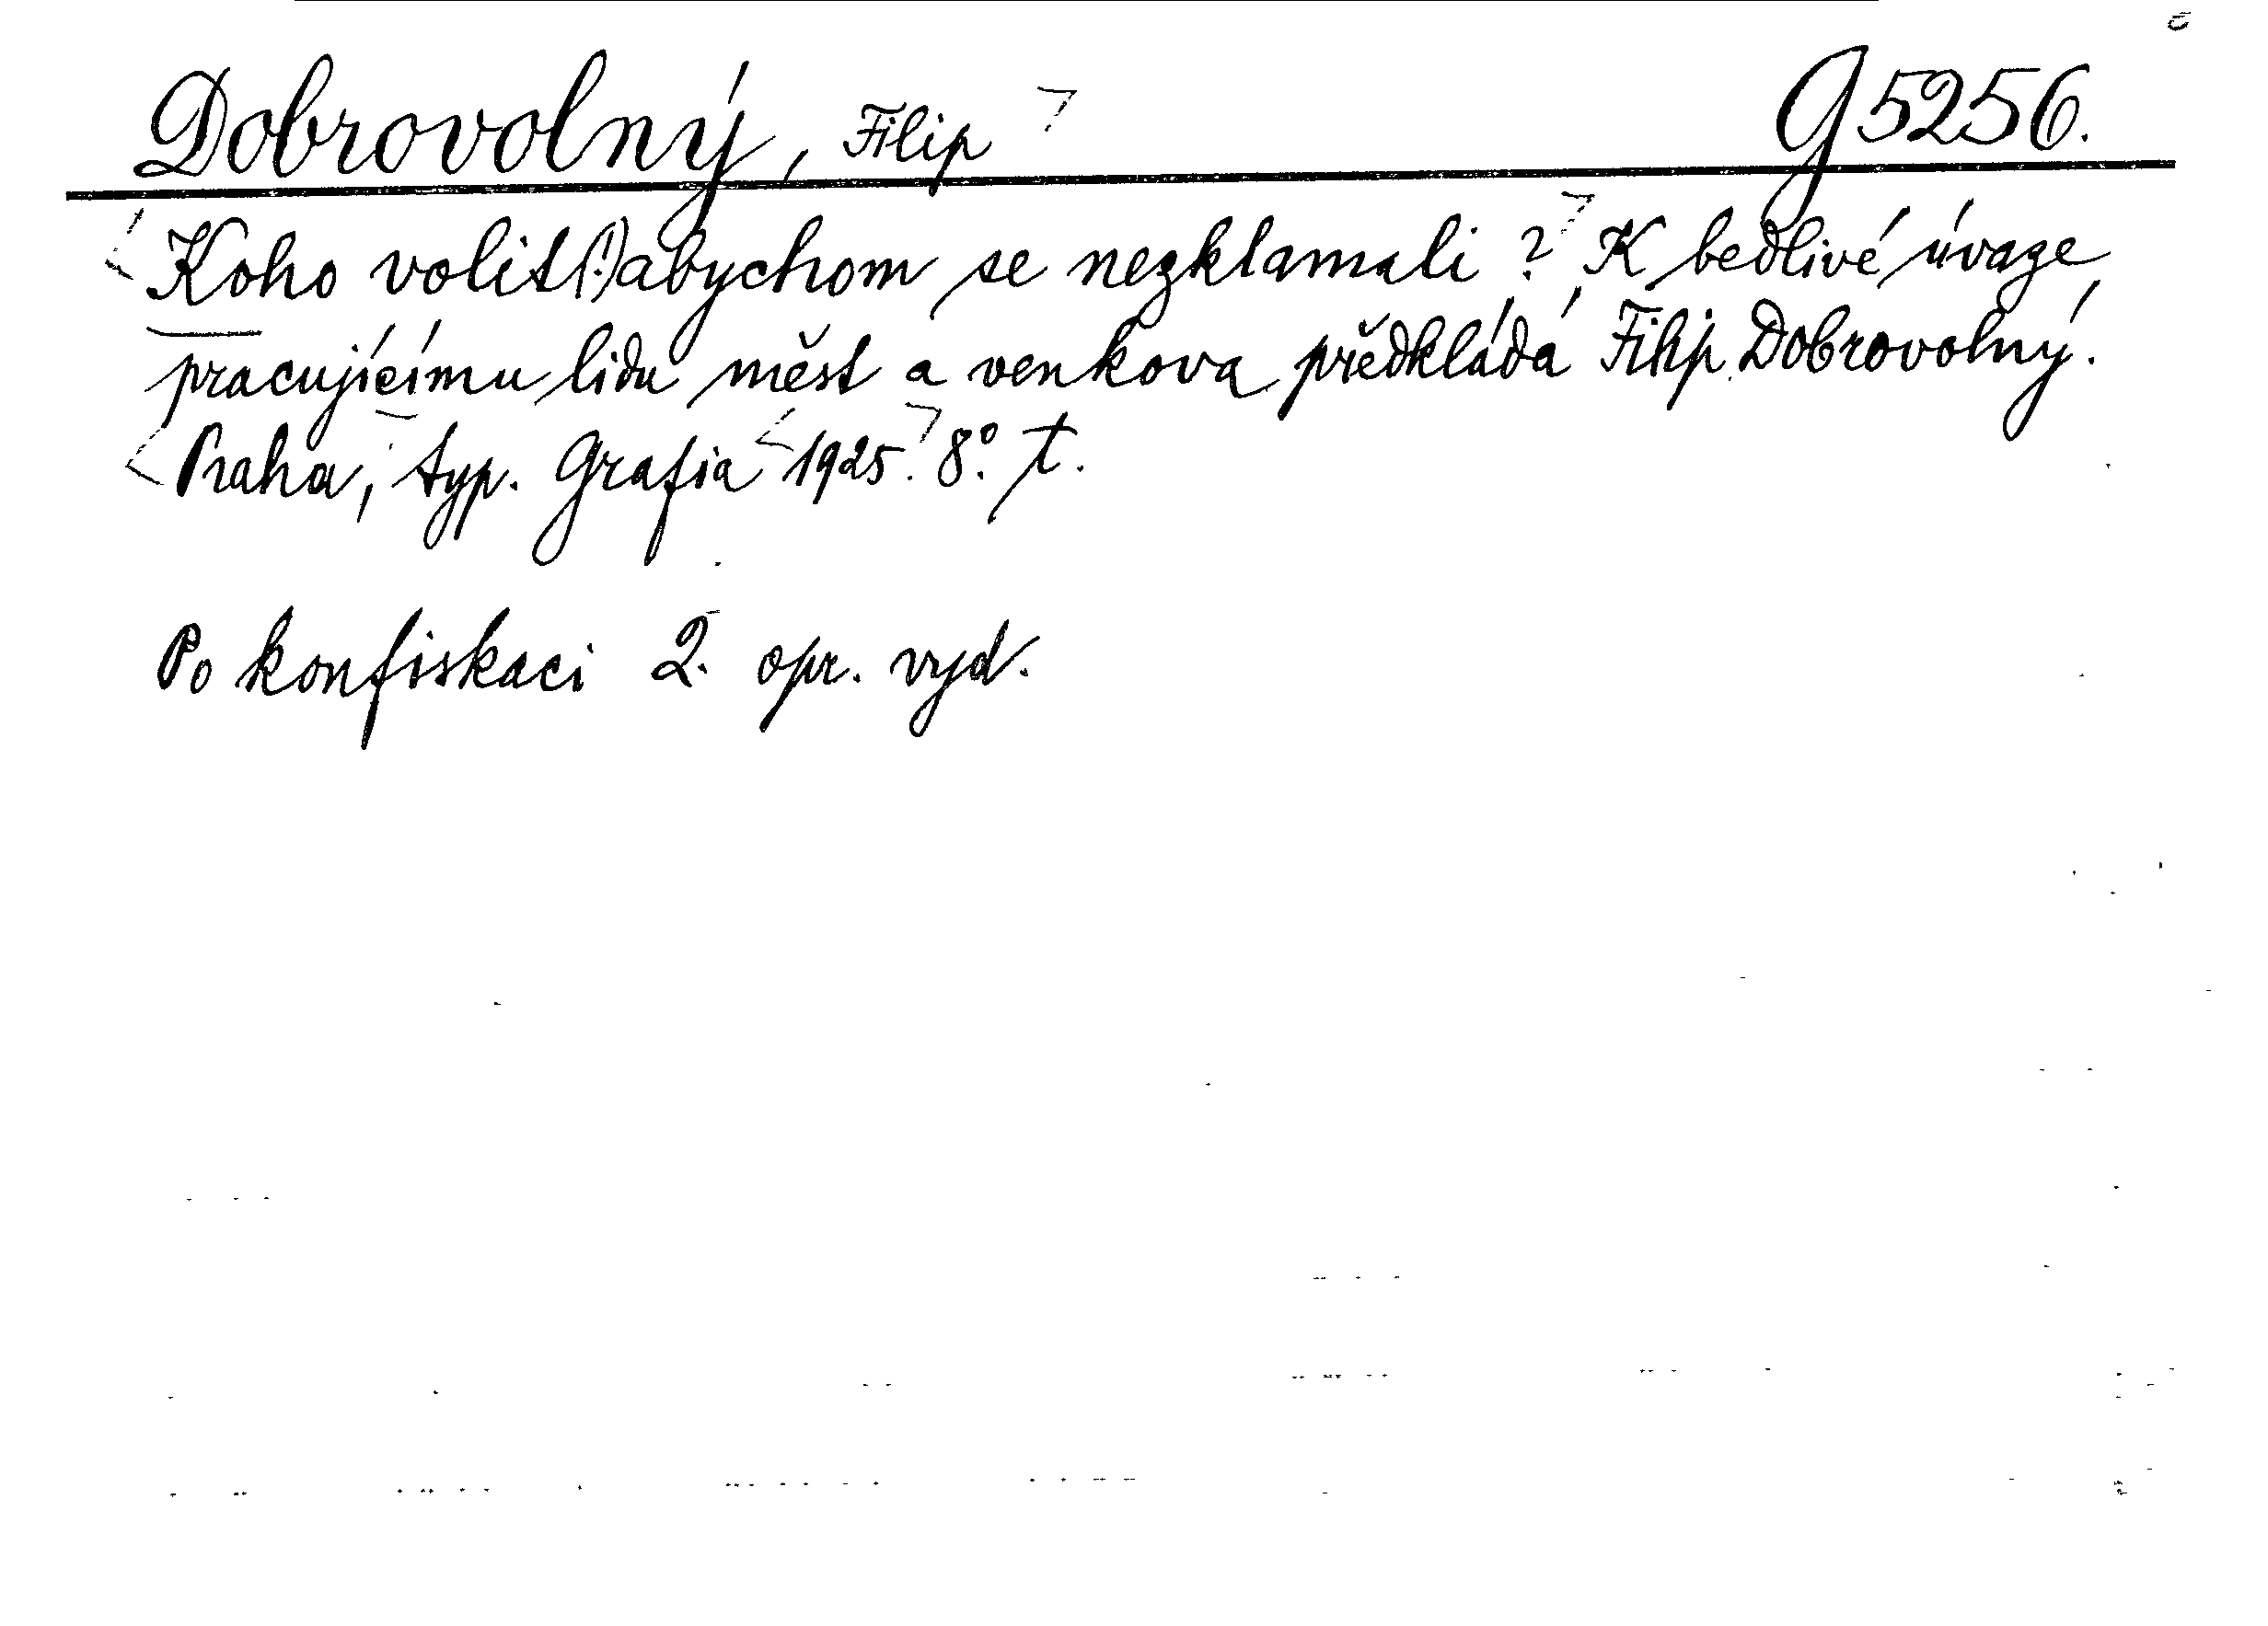 Dobrovolný, Filip G 5256.
Koho volit (!) abychom se nezklamali? K bedlivé úvaze
pracujícímu lidu měst a venkova předkládá Filip Dobrovolný.
Praha, typ. Grafia 1925. 8°. T.
Po konfiskaci 2. opr. vyd.